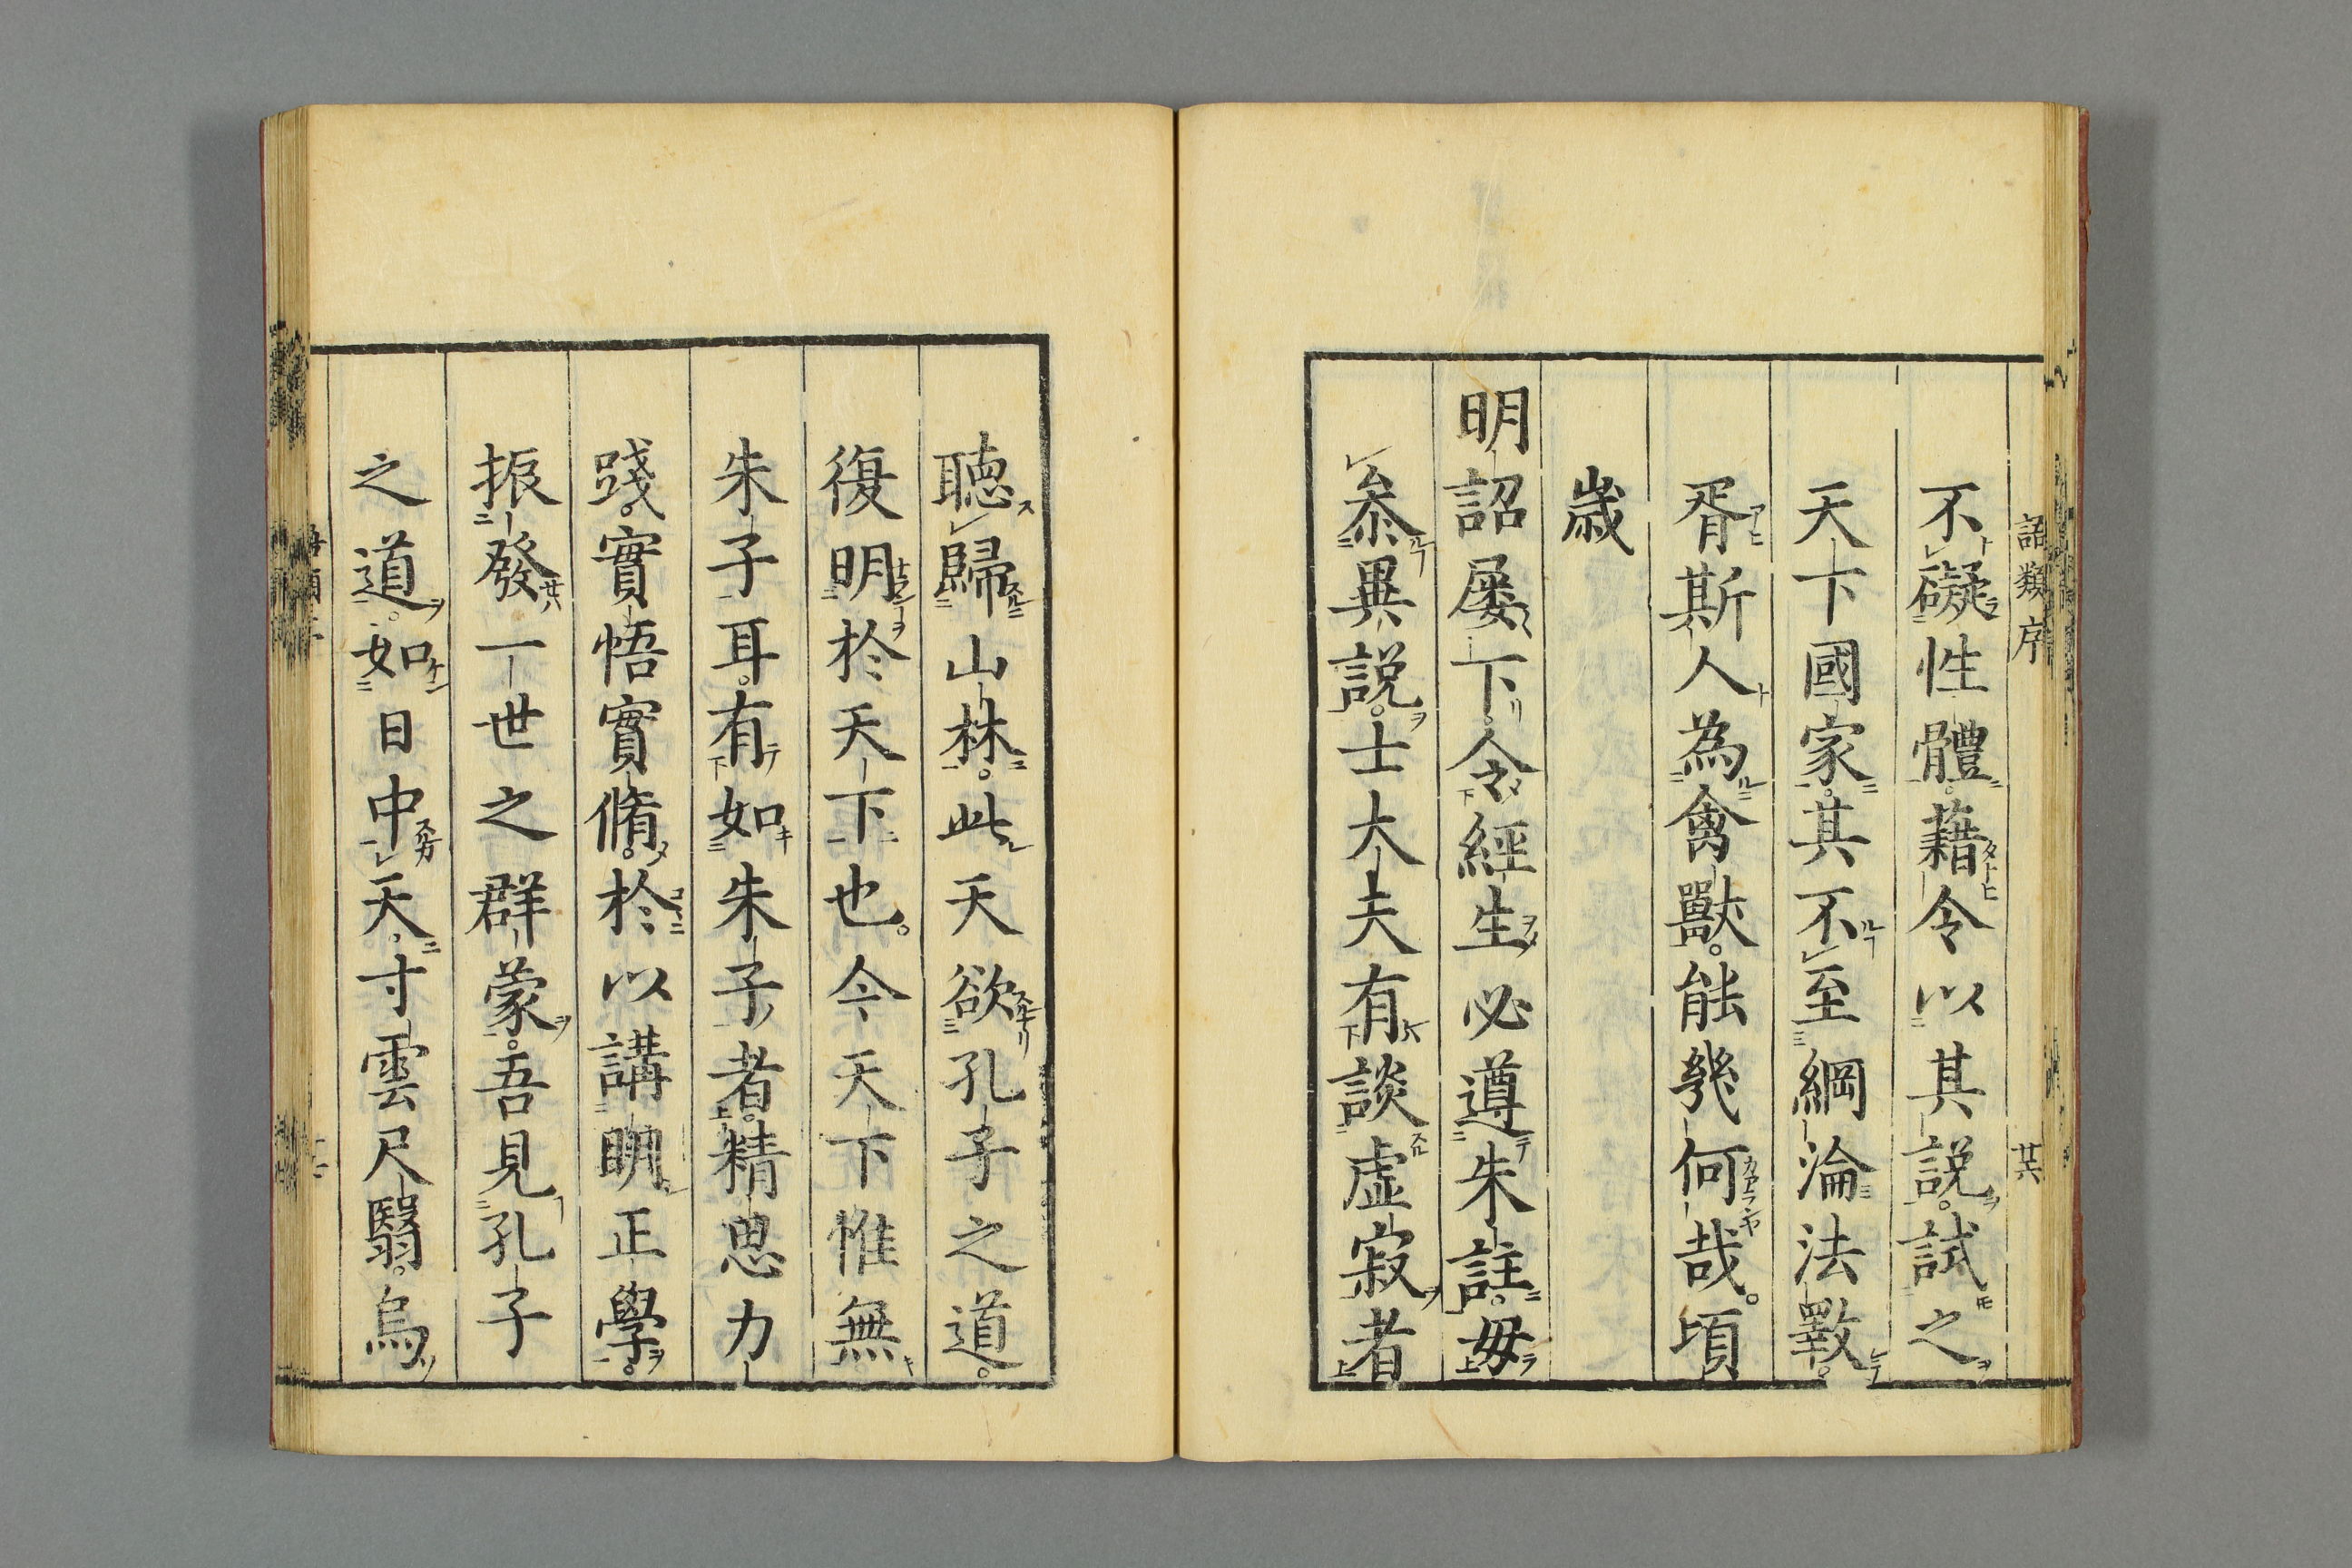 語類序
廿六
不礙性體藉令以其説試之
天下國家其不至綱淪法斁
胥斯人為禽獸能幾何哉頃
歳
明詔屡下令經生必遵朱註毋
叅異説士大夫有談虚寂者
聴歸山林此天欲孔子之道
復明於天下也今天下惟無
朱子耳有如朱子者精思力
踐實悟實脩於以講明正學
振發一世之群蒙吾見孔子
之道如日中天寸雲尺翳烏